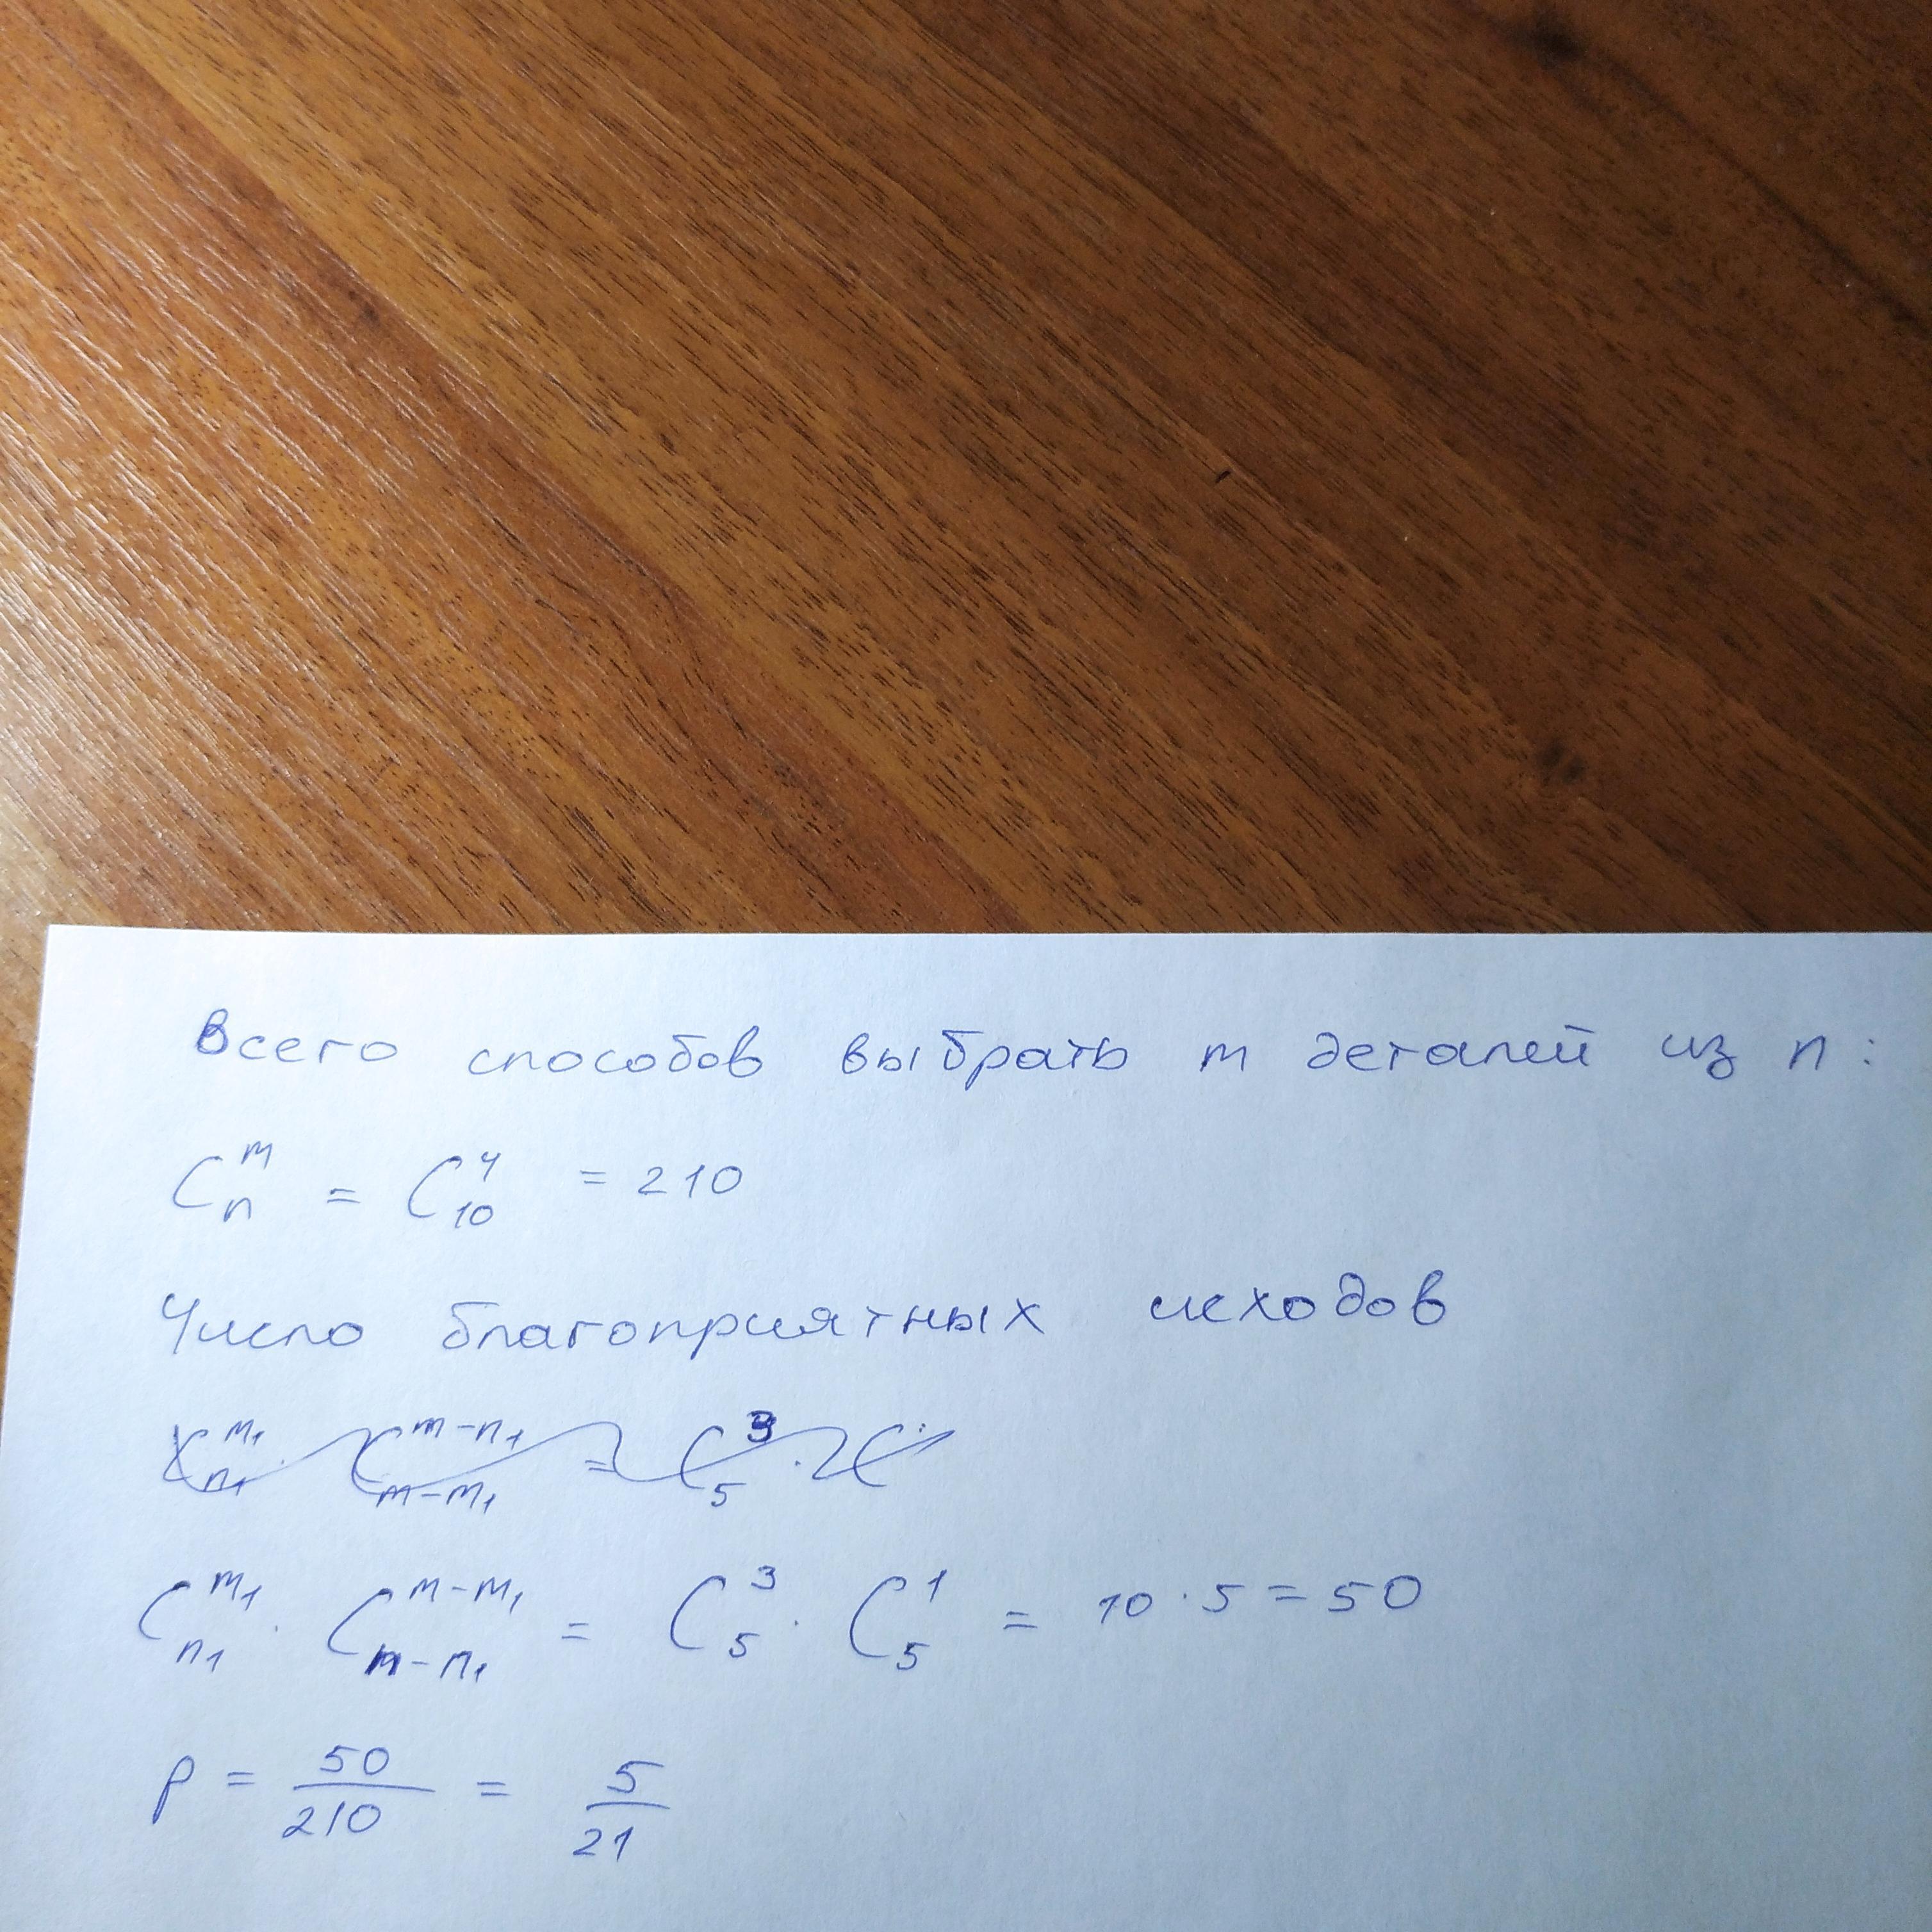 Всего способов выбрать m деталей из n:
C_n^m = C_10^4 = 210
Число благоприятных исходов
C_n1^m1 · C_m-m1^m-n1 = C_5^3 · C
C_n1^m1 · C_n-n1^m-m1 = C_5^3 · C_5^1 = 10 · 5 = 50
p = 50/210 = 5/21